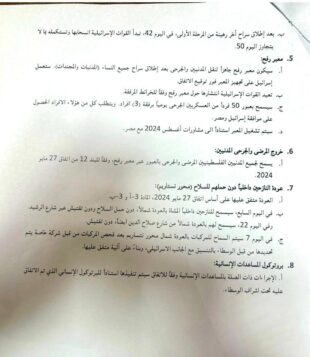 ب. بعد إطلاق سراح آخر رهينة من المرحلة الأولى، في اليوم 42، تبدأ القوات الإسرائيلية انسحابها وتستكمله بما لا
يتجاوز اليوم 50.
5. معبر رفح:
أ. سيكون معبر رفح جاهزاً لنقل المدنيين والجرحى بعد إطلاق سراح جميع النساء (المدنيات والمجندات). ستعمل
إسرائيل على تجهيز المعبر فور توقيع الاتفاق.
ب. تعيد القوات الإسرائيلية انتشارها حول معبر رفح وفقاً للخرائط المرفقة.
ج. سيسمح بعبور 50 فرداً من العسكريين الجرحى يومياً برفقة (3) أفراد. ويتطلب كل من هؤلاء الأفراد الحصول
على موافقة إسرائيل ومصر.
د. سيتم تشغيل المعبر استناداً الى مشاورات أغسطس 2024 مع مصر.
6. خروج المرضى والجرحى المدنيين:
أ. يسمح لجميع المدنيين الفلسطينيين المرضى والجرحى بالعبور عبر معبر رفح، وفقاً للبند 12 من اتفاق 27 مايو
2024.
7. عودة النازحين داخلياً دون حملهم للسلاح (محور نتساريم):
أ. العودة متفق عليها على أساس اتفاق 27 مايو 2024، المادة 3-أ و 3-ب
ب. في اليوم السابع، سيسمح للنازحين داخلياً المشاة بالعودة شمالاً، دون حمل السلاح ودون تفتيش عبر شارع الرشيد.
وفي اليوم 22، سيسمح لهم بالعودة شمالاً من شارع صلاح الدين أيضاً، ودون تفتيش.
ج. في اليوم 7 سيتم السماح للمركبات بالعودة شمال محور نتساريم بعد فحص المركبات من قبل شركة خاصة يتم
تحديدها من قبل الوسطاء، بالتنسيق مع الجانب الاسرائيلي، وبناءً على آلية متفق عليها.
8. بروتوكول المساعدات الإنسانية:
أ. الإجراءات ذات الصلة بالمساعدات الإنسانية وفقاً للاتفاق سيتم تنفيذها استناداً للبرتوكول الإنساني الذي تم الاتفاق
عليه تحت اشراف الوسطاء.